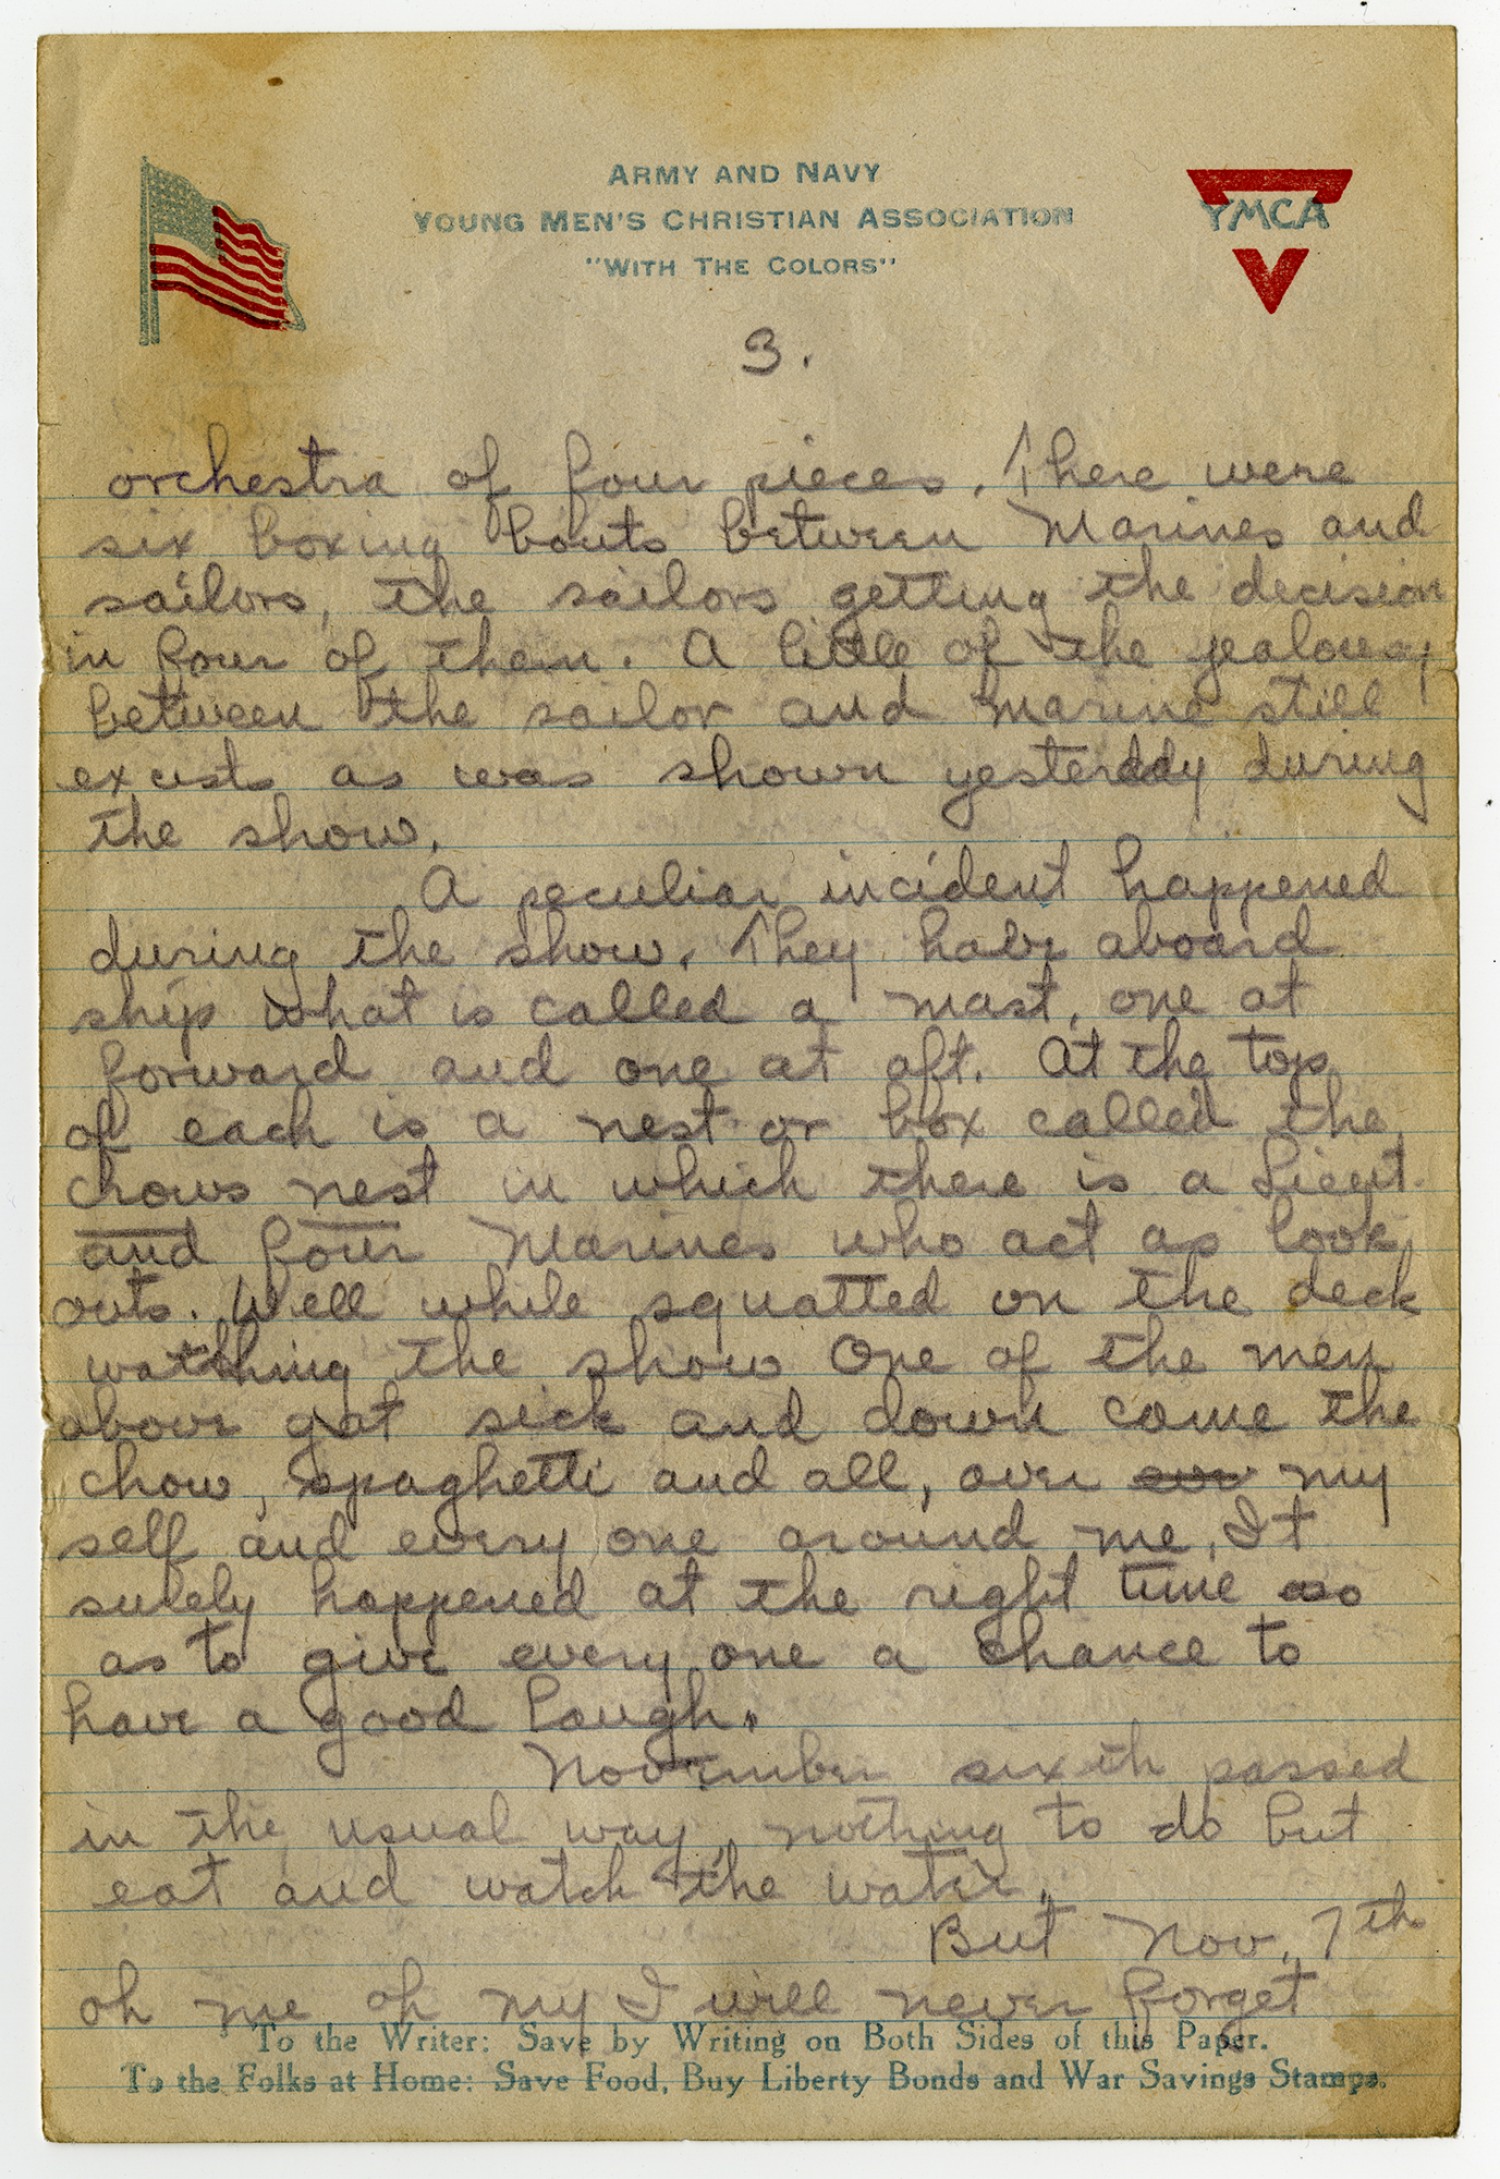 ARMY AND NAVY
YOUNG MEN'S CHRISTIAN ASSOCIATION
"WITH THE COLORS"
YMCA
3.
orchestra of four pieces. There were
six boxing bouts between Marines and
sailors, the sailors getting the decision
in four of them. A little of the jealousy
between the sailor and marine still
exists as was shown yesterday during
the show.
A peculiar incident happened
during the show. They have aboard
ship what is called a mast, one at
forward and one at aft. At the top
of each is a nest or box called the
crows nest in which there is a Lieut.
and four Marines who act as look
outs. Well while squatted on the deck
watching the show One of the men
above got sick and down came the
chow, spaghetti and all, over my
self and every one around me. It
surely happened at the right time so
as to give every one a chance to
have a good laugh.
November sixth passed
in the usual way, nothing to do but
eat and watch the water.
But Nov. 7th
oh me oh my I will never forget
To the Writer: Save by Writing on Both Sides of this Paper.
To the Folks at Home: Save Food, Buy Liberty Bonds and War Savings Stamps.